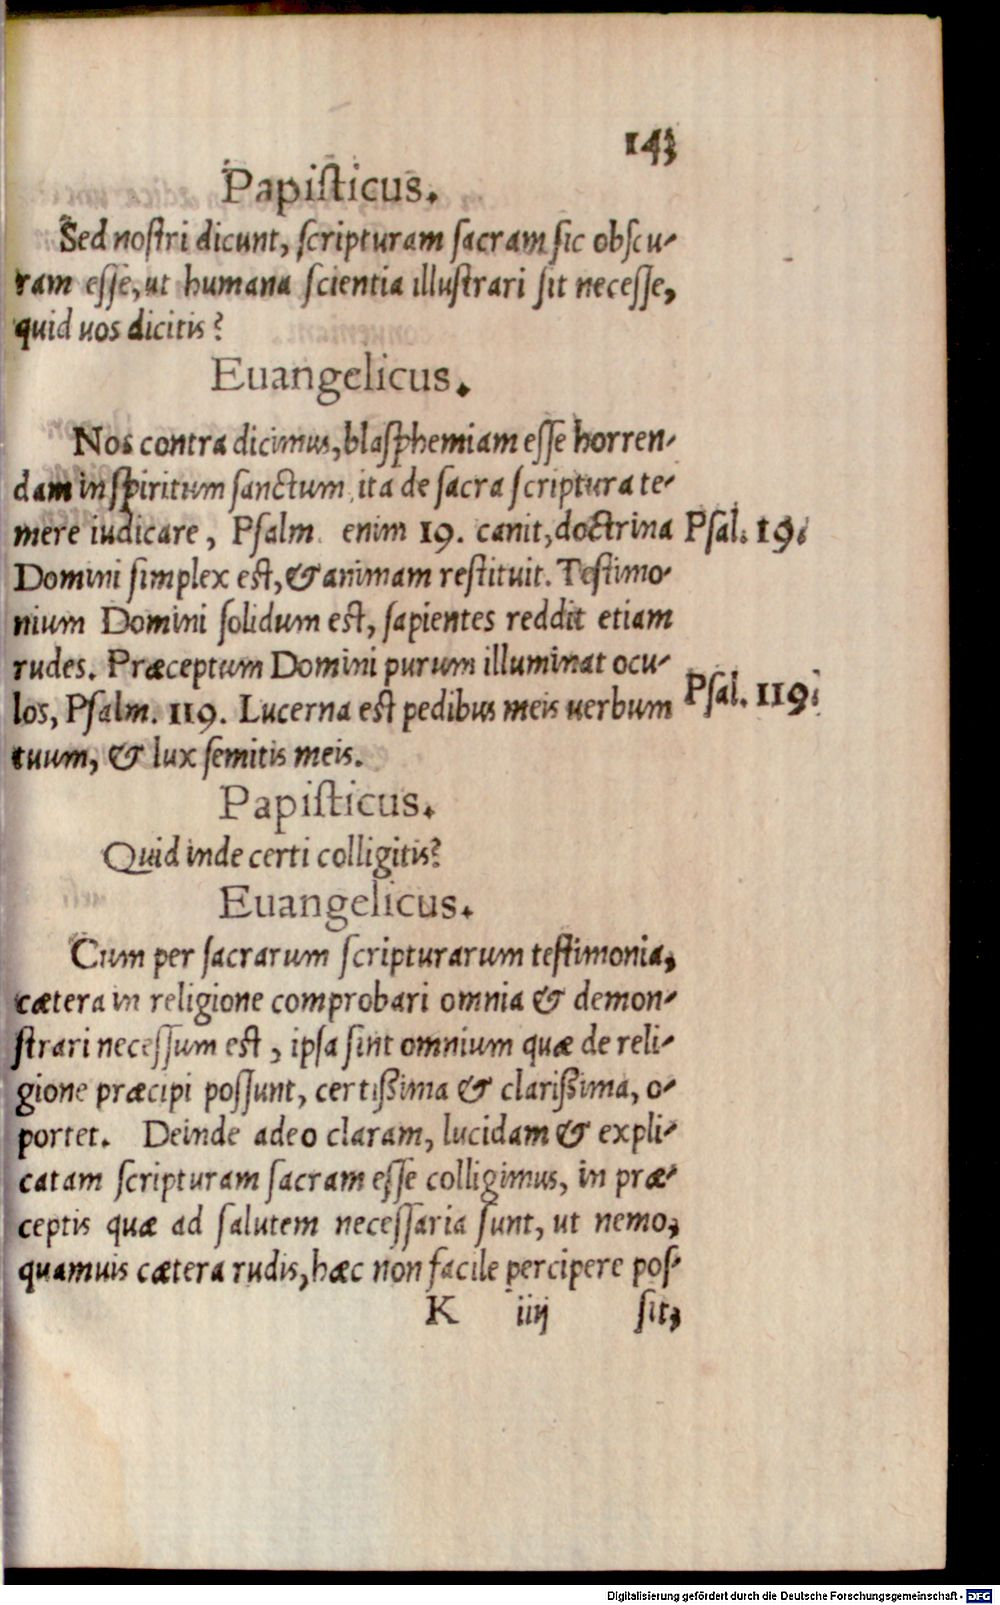 143
Papisticus.
Sed nostri dicunt, scripturam sacram sic obscu-
ram esse, ut humana scientia illustrari sit necesse,
quid uos dicitis?
Euangelicus.
Nos contra dicimus, blasphemiam esse horren-
dam in spiritum sanctum, ita de sacra scriptura te-
mere iudicare, Psalm. enim 19. canit, doctrina
Psal. 19.
Domini simplex est, & animam restituit. Testimo-
nium Domini solidum est, sapientes reddit etiam
rudes. Præceptum Domini purum illuminat ocu-
los, Psalm. 119. Lucerna est pedibus meis uerbum
Psal. 119.
tuum, & lux semitis meis.
Papisticus.
Quid inde certi colligitis?
Euangelicus.
Cum per sacrarum scripturarum testimonia,
cætera in religione comprobari omnia & demon-
strari necessum est, ipsa sint omnium quæ de reli-
gione præcipi possunt, certißima & clarißima, o-
portet. Deinde adeo claram, lucidam & expli-
catam scripturam sacram esse colligimus, in præ-
ceptis quæ ad salutem necessaria sunt, ut nemo,
quamuis cætera rudis, hæc non facile percipere pos-
K iiij sit,
Digitalisierung gefördert durch die Deutsche Forschungsgemeinschaft - DFG